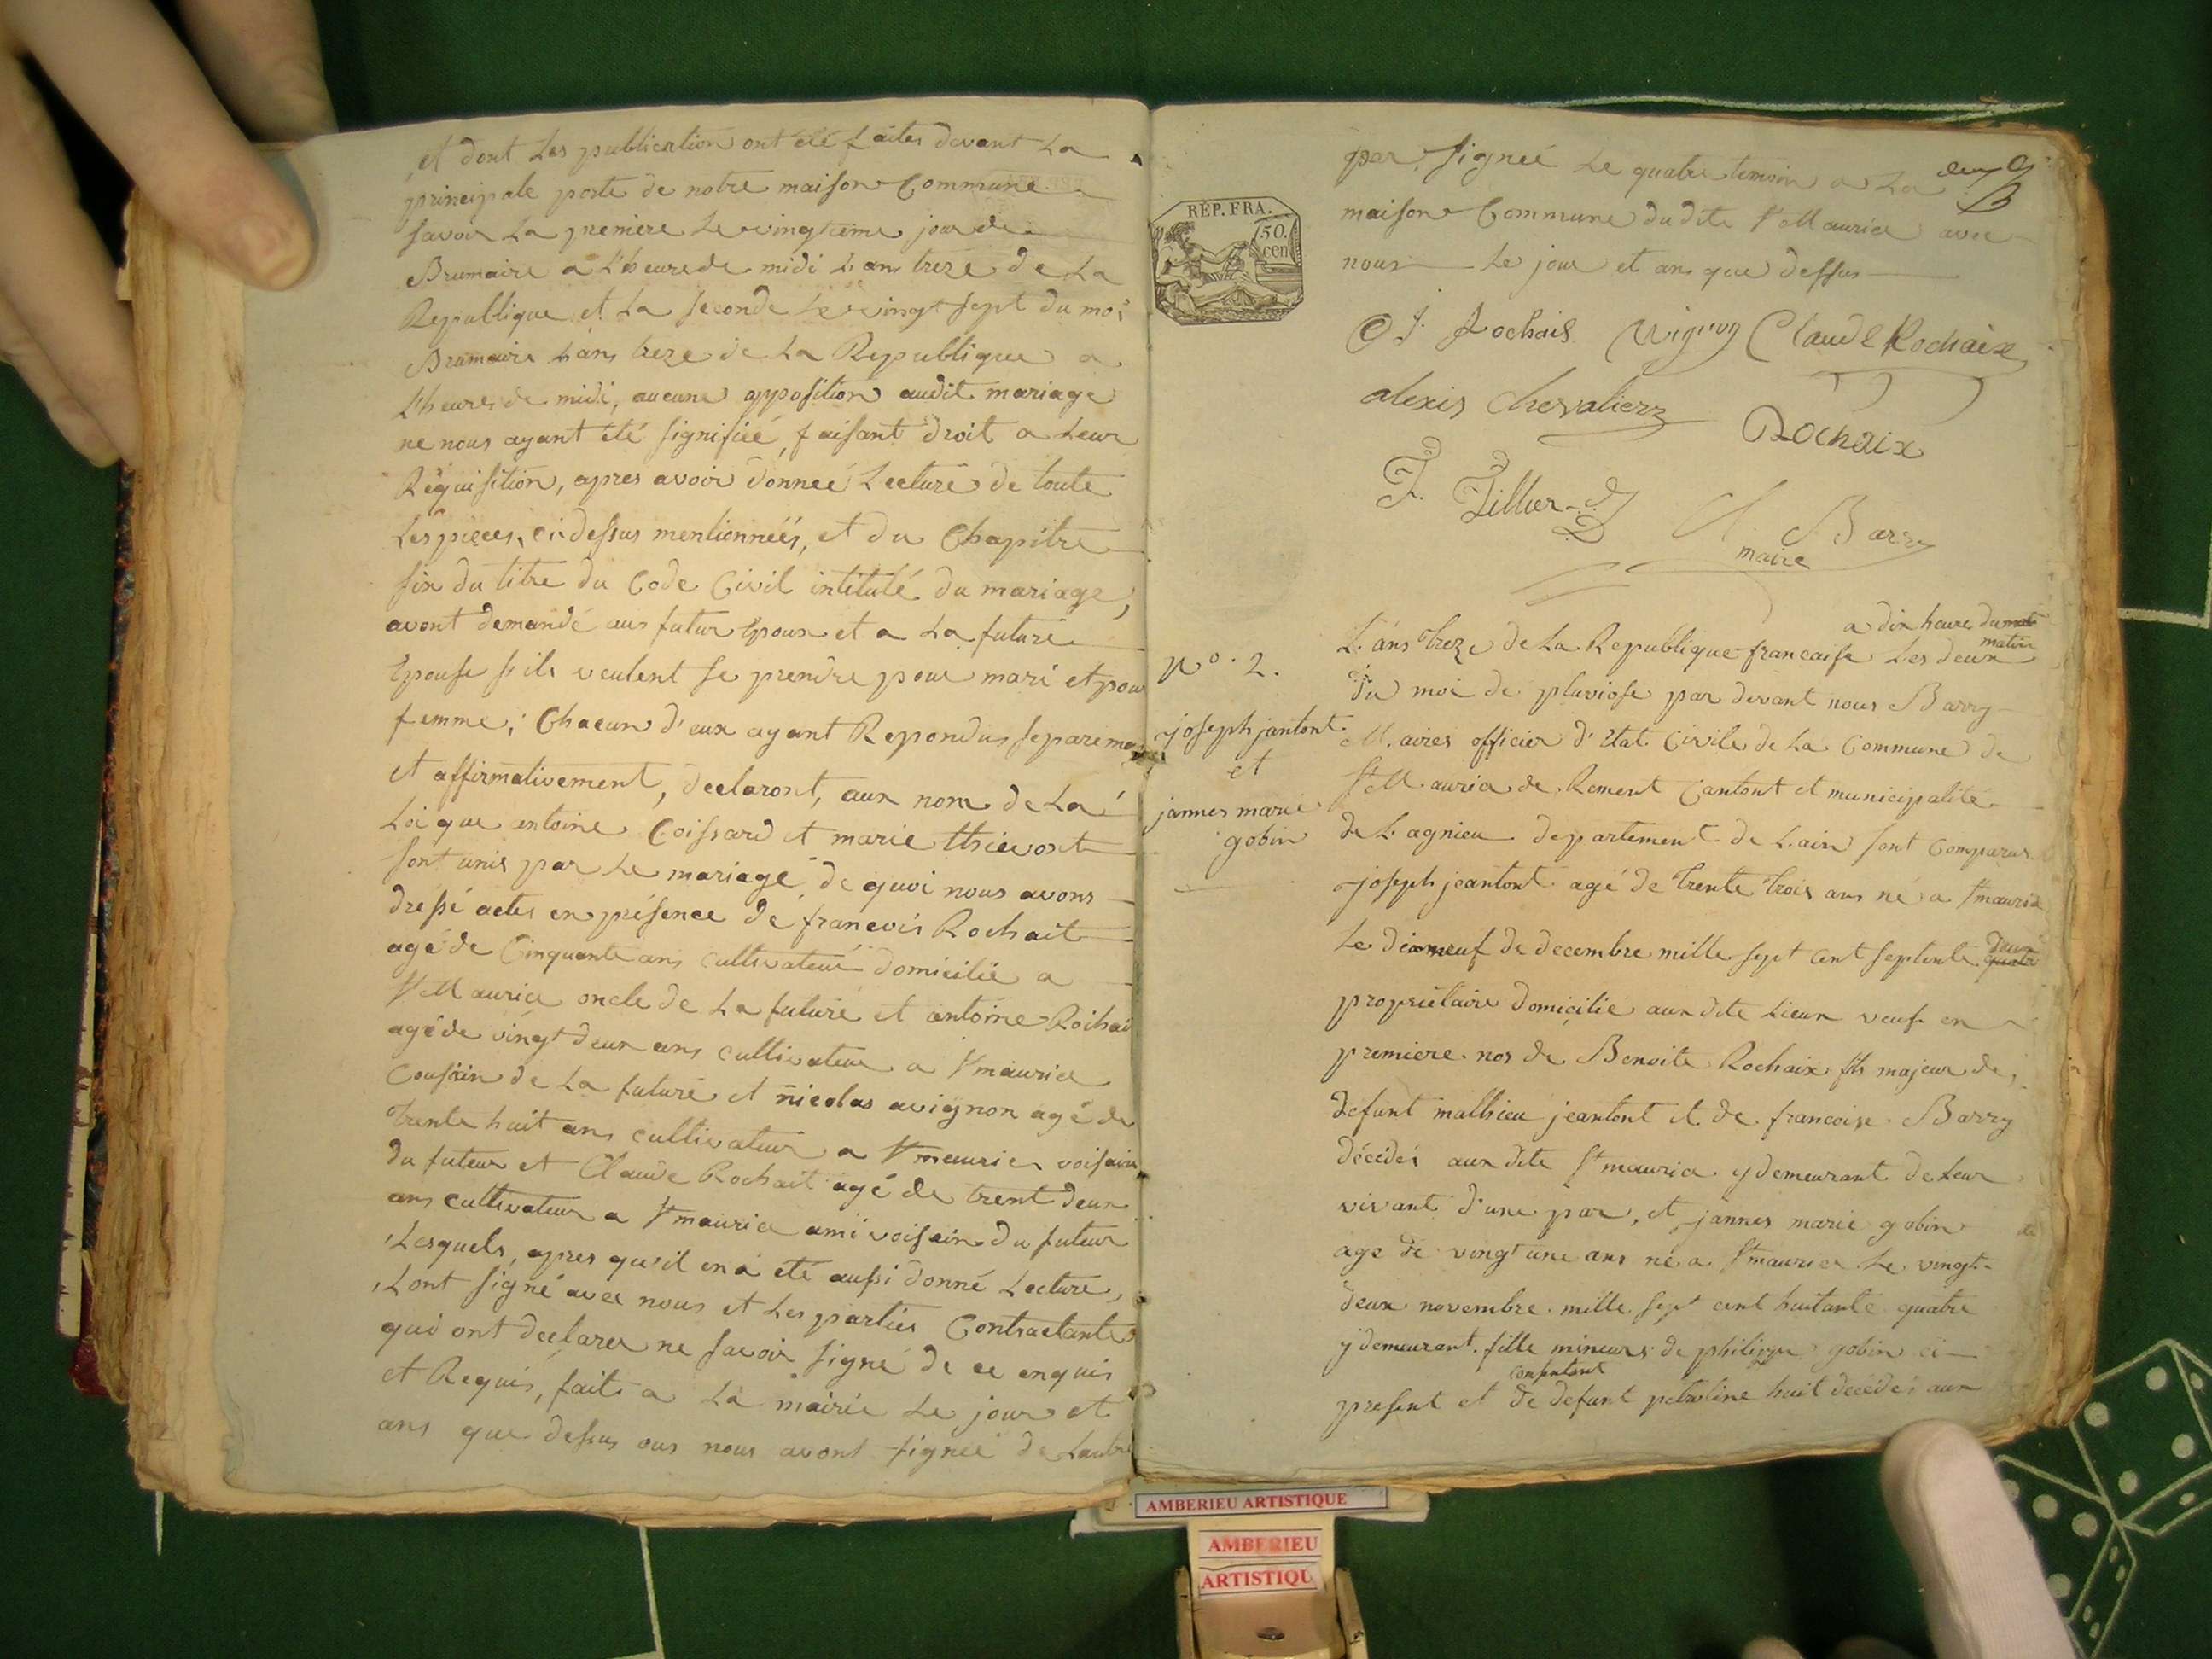 et dont Les publication ont été faites devant La
principale porte de notre maison Commune
savoir La premiere Le vingtieme jour de
Brumaire a L'heure de midi L'ans treze de La
Republique et La seconde Le vingt sept du moi
Brumaire L'ans treze de La Republique a
L'heure de midi, aucune opposition audit mariage
ne nous ayant été signifiéé, faisant droit a Leur
Réquisition, apres avoir donnéé Lecture de toute
Les pieces, ci dessus mentionnéés, et du Chapitre
six du titre du Code Civil intitulé du mariage,
avont demandé aus futur Epoux et a La future
Epouse s'ils veulent se prendre pour mari et pour
femme; Chacun d'eux ayant Repondus separemen
et affirmativement, declaront, aux nom de La
Loi que antoine Coissard et marie thievont
sont unis par Le mariage de quoi nous avons
dressé actes en présence de francois Rochait
agé de Cinquante ans cultivateur domicilié a
St Maurice oncle de La future et antoine Rochai
agé de vingt deux ans cultivateur a St maurice
Cousin de La future et nicolas avignon agé de
trente huit ans cultivateur a St maurice voisain
du futeur et Claude Rochait agé de trent deux
ans cultivateur a St maurice ami voisain du futeur
Lesquels, apres qu'il en a été aussi donné Lecture,
Lont signé avec nous et Les parties Contractantes
qui ont declarer ne savoir signé de ce enquis
et Requis, fait a La mairie Le jour et
ans que dessus ous nous avont signéé de Lautre
par signéé Le quatre temoin a La
deux
maison Commune du dite St Maurice avec
nous Le jour et ans que dessus
RÉP. FRA.
50. cen
Rochais Vignon Claude Rochaix
alexis chevalier
Rochaix
J. Tillier
Barry
maire
a dix heure du mat
matin
L'ans treze de La Republique francaise Les deux
No. 2.
du moi de pluviose par devant nous Barry
joseph jantont
et
jannes marie
gobin
Maires officier d'état Civile de La Commune de
St Maurice de Rement Cantont et municipalité
de Lagnieu departement de L'ain sont Comparus
joseph jeantont agé de trente trois ans né a St maurice
Le dixneuf de decembre mille sept cent septente quatre
deux
propriétaire domicilié aux dite Lieux veuf en
premiere nos de Benoite Rochaix fils majeur de
defunt mathieu jeantont et de francoise Barry
décédés aux dite St maurice y demeurant de Leur
vivant d'une par, et jannes marie gobin
age de vingt une ans né a St maurice Le vingt
deux novembre mille sept cent huitante quatre
y demeurant fille mineurs de philippe gobin ci
consentant
present et de defunt petroline huit décédés aux
AMBERIEU ARTISTIQUE
AMBERIEU
ARTISTIQU